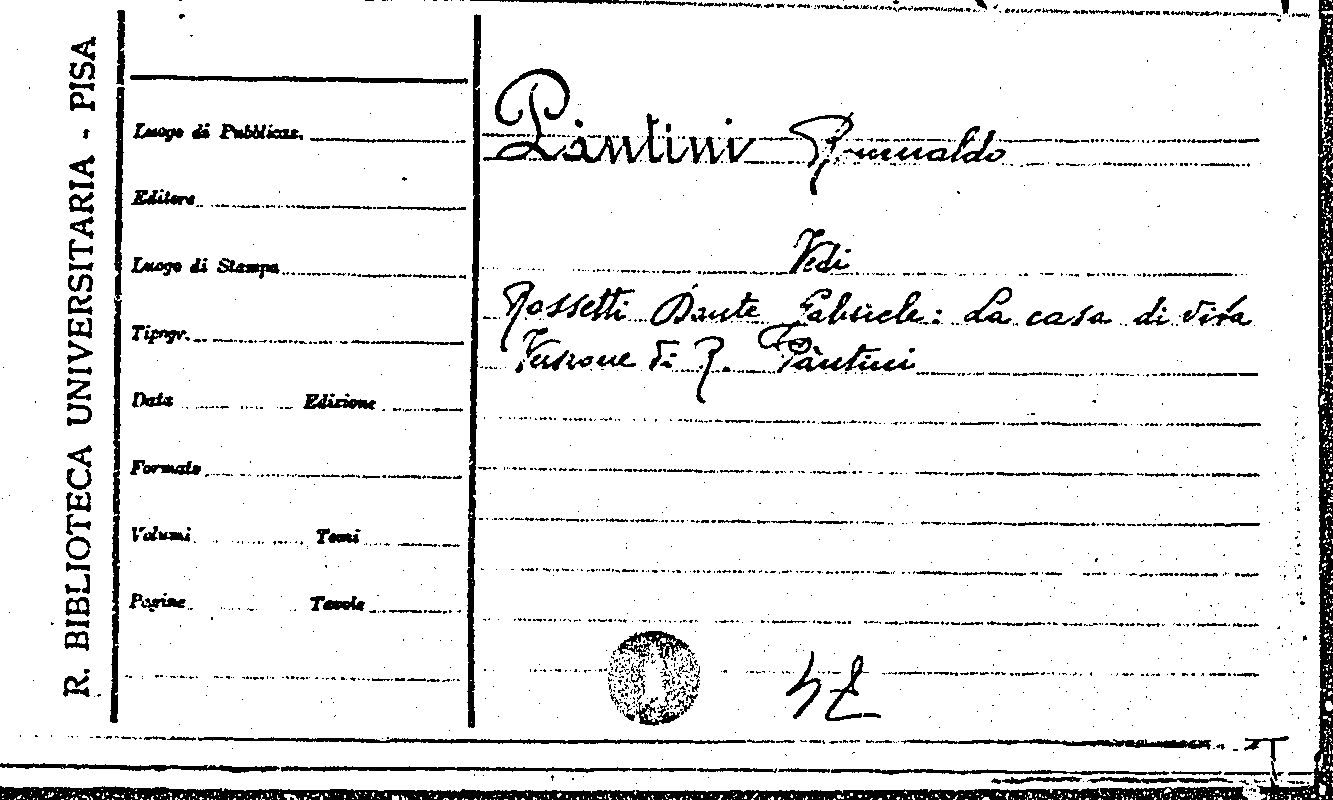 R. BIBLIOTECA UNIVERSITARIA - PISA
Luogo di Pubblicaz.
Editore
Luogo di Stampa
Tipogr.
Data Edizione
Formato
Volumi Tomi
Pagine Tavole
Pantini Romualdo
Vedi
Rossetti Dante Gabriele: La casa di vita
Versione di R. Pàntini